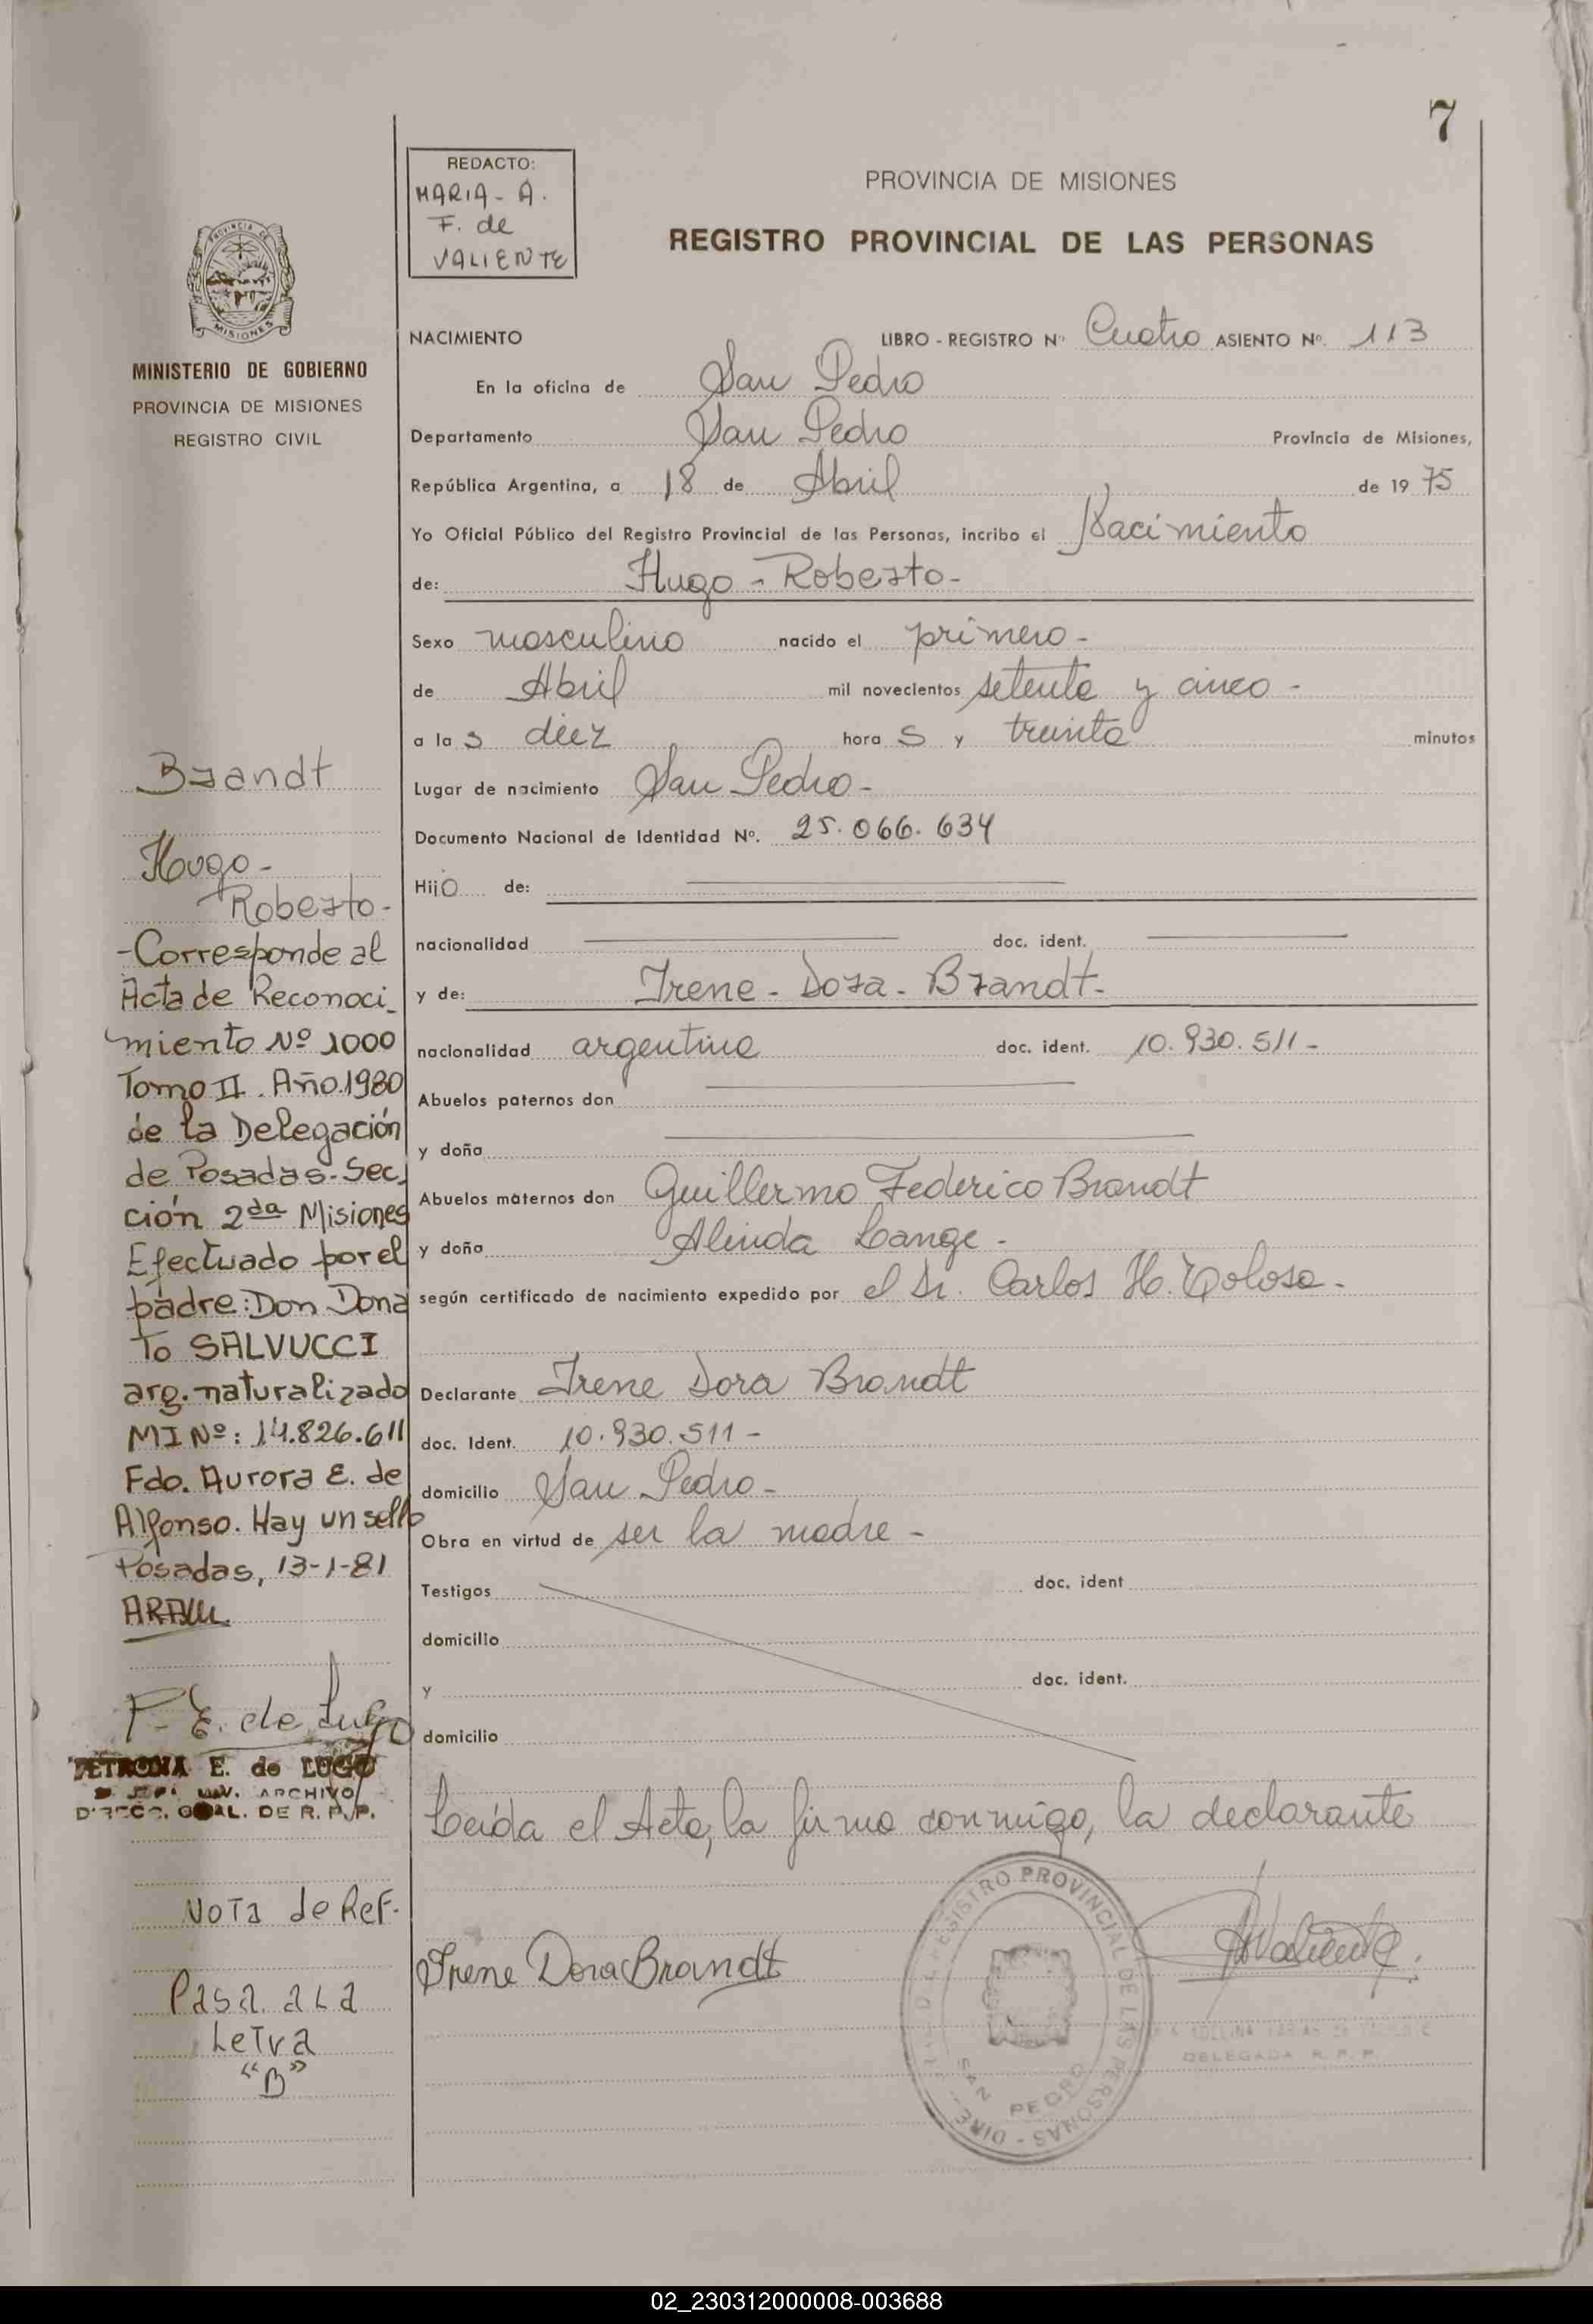 7
REDACTO:
MARIA - A.
F. de
VALIENTE
PROVINCIA DE MISIONES
REGISTRO PROVINCIAL DE LAS PERSONAS
PROVINCIA DE
MISIONES
MINISTERIO DE GOBIERNO
PROVINCIA DE MISIONES
REGISTRO CIVIL
NACIMIENTO LIBRO - REGISTRO Nº Cuatro ASIENTO Nº. 113
En la oficina de San Pedro
Departamento San Pedro Provincia de Misiones,
República Argentina, a 18 de Abril de 19 75
Yo Oficial Público del Registro Provincial de las Personas, incribo el Nacimiento
de: Hugo - Roberto -
Sexo masculino nacido el primero -
de Abril mil novecientos setenta y cinco -
a la s diez hora s y treinta minutos
Lugar de nacimiento San Pedro -
Documento Nacional de Identidad Nº. 25.066.634
Hijo de:
nacionalidad doc. ident.
y de: Irene - Dora - Brandt -
nacionalidad argentina doc. ident. 10.930.511 -
Abuelos paternos don
y doña
Abuelos maternos don Guillermo Federico Brandt
y doña Alinda Lange -
según certificado de nacimiento expedido por el Dr. Carlos H. Tolosa -
Declarante Irene Dora Brandt
doc. Ident. 10.930.511 -
domicilio San Pedro -
Obra en virtud de ser la madre -
Testigos doc. ident
domicilio
y doc. ident.
domicilio
Leída el Acta, la firma conmigo, la declarante
Irene Dora Brandt
AValiente
REGISTRO PROVINCIAL DE LAS PERSONAS - DIRE
SAN PEDRO
DELEGADA R. P. P.
Brandt
Hugo -
Roberto -
- Corresponde al
Acta de Reconoci_
miento Nº 1000
Tomo II. Año 1980
de la Delegación
de Posadas - Sec,
ción 2da Misiones
Efectuado por el
padre: Don Dona
To SALVUCCI
arg. naturalizado
MI Nº: 14.826.611
Fdo. Aurora E. de
Alfonso. Hay un sello
Posadas, 13-1-81
P. E. de Lugo
PETRONA E. de LUGO
ARCHIVO
DIRECC. GRAL. DE R. P. P.
Nota de Ref.
Pasa a La
Letra
"B"
02_230312000008-003688